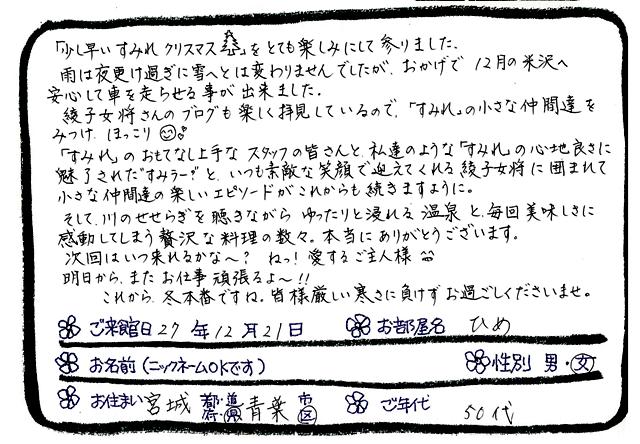 「少し早い すみれ クリスマス🎄をとても楽しみにして参りました。
雨は夜更け過ぎに雪へとは変わりませんでしたが、おかげで 12月の米沢へ
安心して車を走らせる事が出来ました。
綾子女将さんのブログも楽しく拝見しているので、「すみれ」の小さな仲間達を
みつけ ほっこり😊♪
「すみれ」のおもてなし上手な スタッフの皆さんと、私達のような「すみれ」の心地良さに
魅了された"すみラー"と、いつも素敵な笑顔で迎えてくれる 綾子女将に囲まれて
小さな仲間達の楽しいエピソードがこれからも続きますように。
そして、川のせせらぎを聴きながら ゆったりと浸れる 温泉と、毎回美味しさに
感動してしまう贅沢な料理の数々。本当にありがとうございます。
次回はいつ来れるかな〜? ねっ! 愛するご主人様
明日から、またお仕事 頑張るよ〜!!
これから、冬本番ですね。皆様厳しい寒さに負けず お過ごしくださいませ。
ご来館日 27 年 12 月 21 日 お部屋名 ひめ
お名前 (ニックネームOKです) 性別 男・女
お住まい 宮城 都・道 府・県 青葉 市 区 ご年代 50代